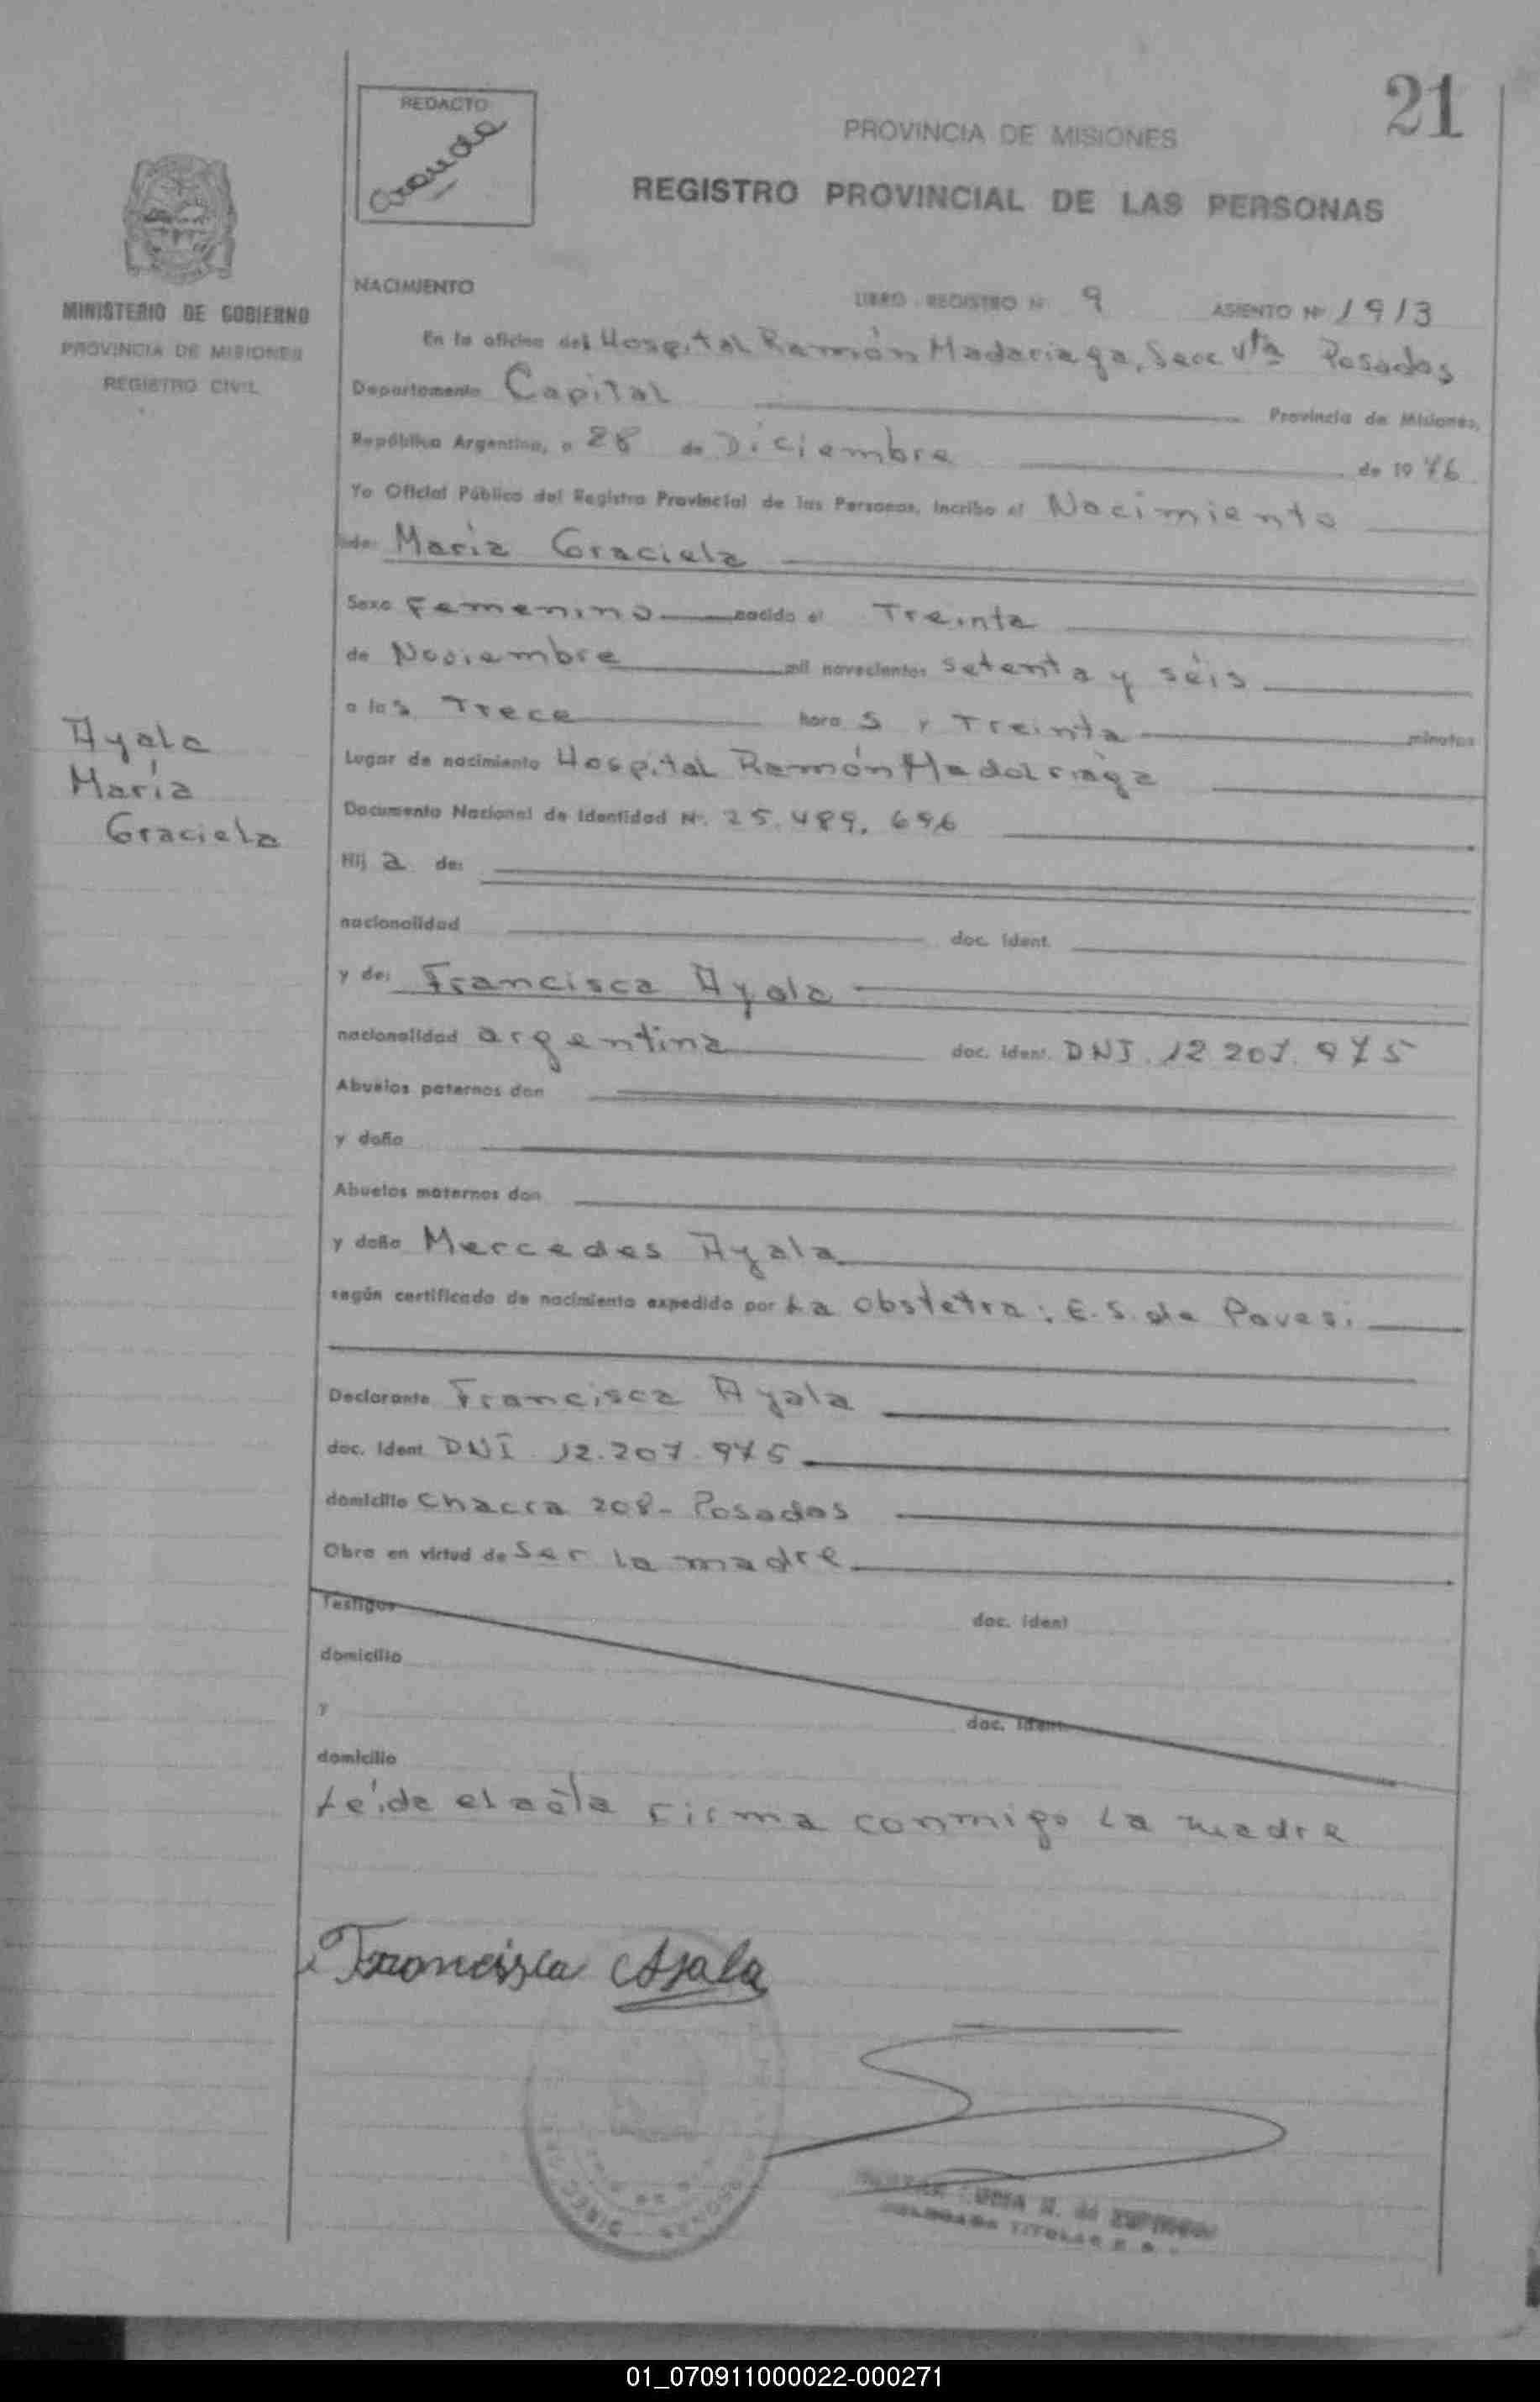 21
REDACTO
PROVINCIA DE MISIONES
REGISTRO PROVINCIAL DE LAS PERSONAS
MINISTERIO DE GOBIERNO
PROVINCIA DE MISIONES
REGISTRO CIVIL
NACIMIENTO
LIBRO REGISTRO Nº 9 ASIENTO Nº 1913
En la oficina del Hospital Ramón Madariaga, Secc Vta Posadas
Departamento Capital Provincia de Misiones,
República Argentina, a 28 de Diciembre de 1976
Yo Oficial Público del Registro Provincial de las Personas, incribo el Nacimiento
de: María Graciela
Sexo Femenino nacido el Treinta
de Noviembre mil novecientos setenta y séis
a las Trece horas y Treinta minutos
Lugar de nacimiento Hospital Ramón Madariaga
Documento Nacional de Identidad Nº. 25.489.696
Ayala
María
Graciela
Hija de:
nacionalidad doc. ident.
y de: Francisca Ayala
nacionalidad argentina doc. ident. DNI. 12.207.975
Abuelos paternos don
y doña
Abuelos maternos don
y doña Mercedes Ayala
según certificado de nacimiento expedido por La obstetra: E.S. de Pavesi
Declarante Francisca Ayala
doc. ident DNI. 12.207.975
domicilio Chacra 208- Posadas
Obra en virtud de Ser la madre
Testigos doc. ident
domicilio
y doc. ident.
domicilio
Leída el acta firma conmigo la madre
Francisca Ayala
DELEGADA TITULAR
01_070911000022-000271